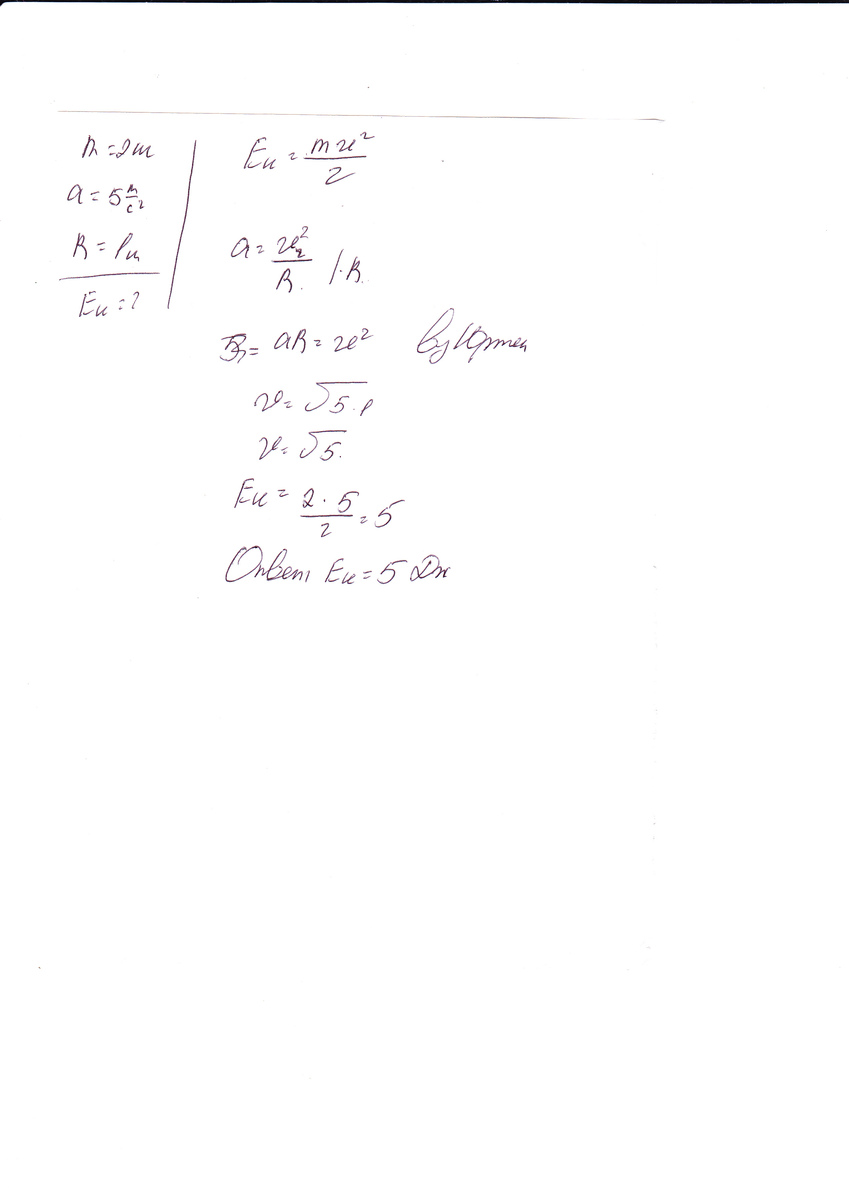 m = 2т
a = 5 м/с²
R = 1м
Eк = ?
Eк = mv²/2
a = v²/R | · R
aR = v²
by Юртей
v = √5·1
v = √5.
Eк = 2·5/2 = 5
Ответ: Eк = 5 Дж